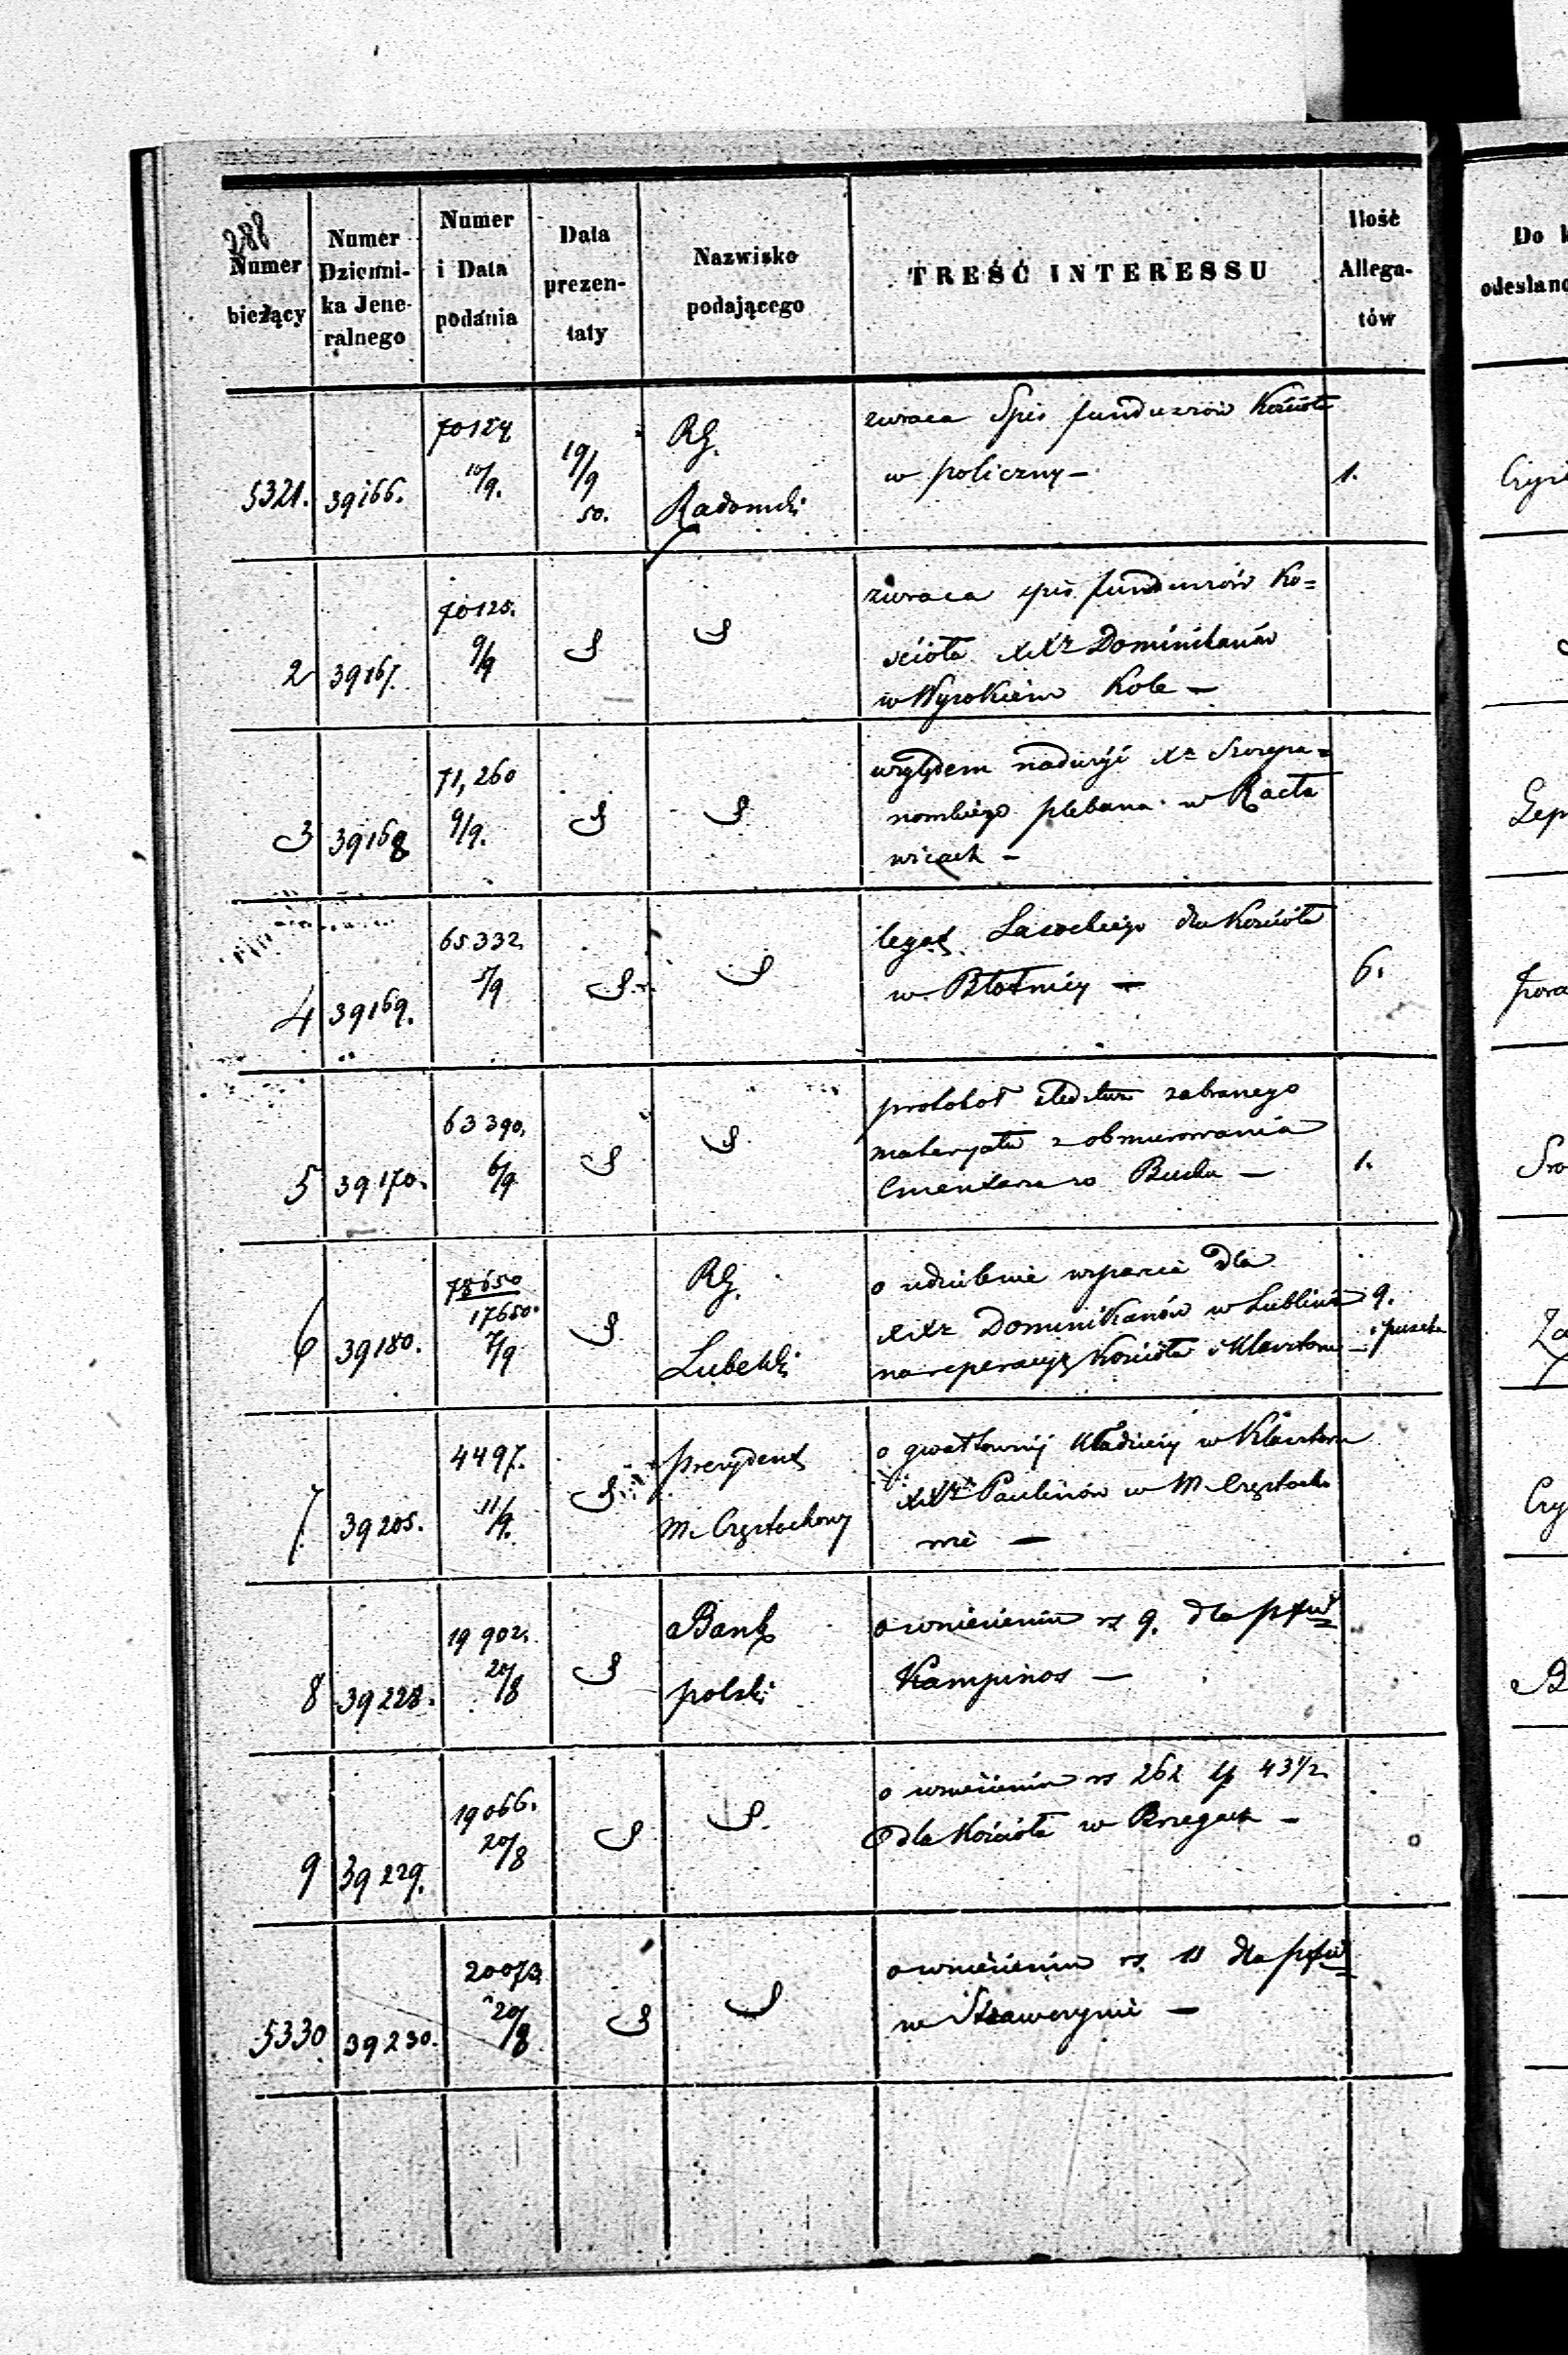 288
Numer bieżący
Numer Dzienni-ka Jene-ralnego
Numer i Data podania
Data prezen-taty
Nazwisko podającego
TREŚĆ INTERESSU
Ilość Allega-tów
Do k
odesłano
5321. 39166. 70124 10/9. 19/9 50. RG. Radomski
zwraca Spis funduszów Kościoła
w policzny — 1.
2 39167. 70125. 9/9
zwraca spis funduszów Ko=
ścioła XXr Dominikanów
w Wysokiem Kole —
3 39168 71,260 9/9.
względem nadużyć Xa Szczepa=
nowskiego plebana w Racła
wicach —
4 39169. 65332. 5/9
legat Lasockiego dla Kościoła
w Błotnicy — 6.
5 39170. 63390. 6/9
protokół śledztwa zabranego
materyału z obmurowania
Cmentarza w — 1.
6 39180. 78650 17650. 7/9 RG. Lubelski
o udzielenie wsparcia dla
XXr Dominikanów w Lublinie 9.
na reperacyę Kościoła i Klasztoru — i puszka
7. 39205. 4497. 11/9. Prezydent M. Częstochowy
o gwałtownéj Kradzieży w Klasztorze
XXr Paulinów w M. Częstocho
wie —
8 39228. 19902. 20/8 Bank polski
o wniesieniu rs 9. dla
Kampinos —
9 39229. 19066. 20/8
o wniesieniu rs 262 k 43 1/2
dla Kościoła w Brzegach —
5330 39230. 20073. 20/8
o wniesieniu rs. 18 dla
w —